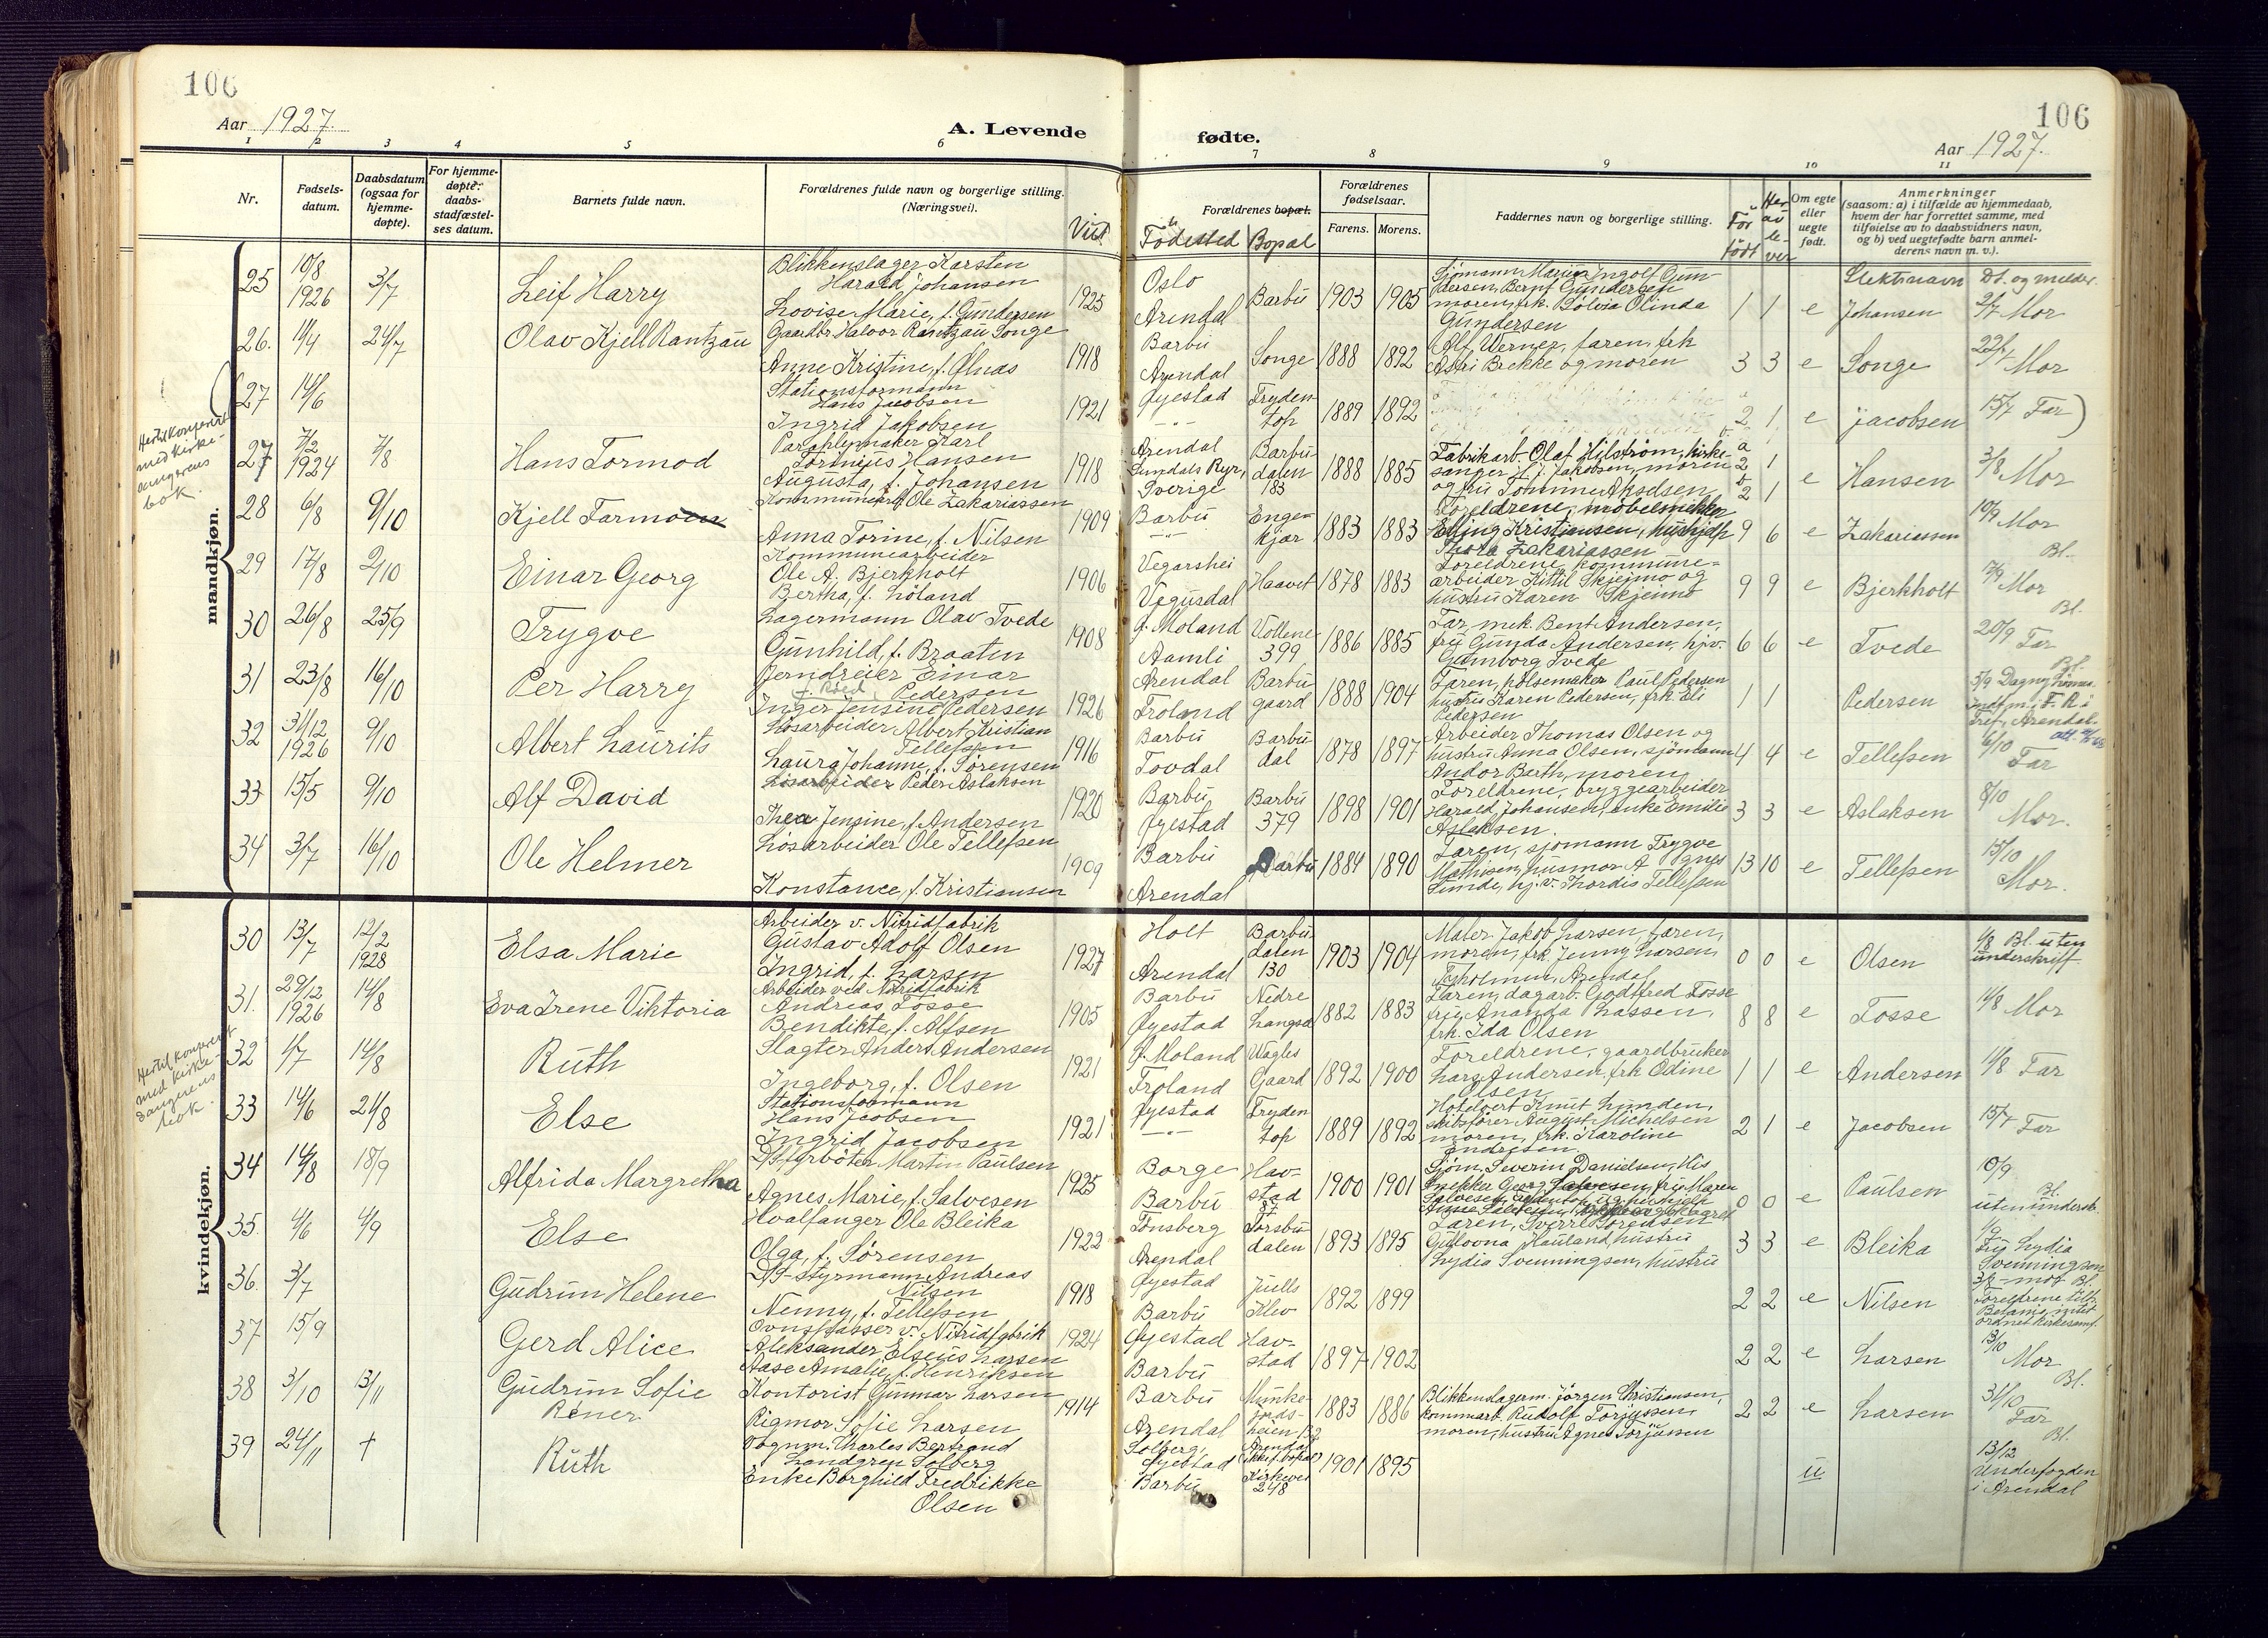 106
106
Aar 1927.
A. Levende
fødte.
Aar 1927.
1 2 3 4 5 6 7 8 9 10 11
Nr.
Fødsels-
datum.
Daabsdatum
(ogsaa for
hjemme-
døpte).
For hjemme-
døpte:
daabs-
stadfæstel-
ses datum.
Barnets fulde navn.
Forældrenes fulde navn og borgerlige stilling.
(Næringsvei).
Viet
Forældrenes bopæl.
Fødested Bopal
Forældrenes
fødselsaar.
Farens. Morens.
Faddernes navn og borgerlige stilling.
Før
født
Her
av
le-
ver
Om egte
eller
uegte
født.
Anmerkninger
(saasom: a) i tilfælde av hjemmedaab,
hvem der har forrettet samme, med
tilføielse av to daabsvidners navn,
og b) ved uegtefødte barn anmel-
derens navn m. v.).
Slektsnavn Dt. og melder.
mandkjøn.
25 10/8 1926 3/7 Leif Harry
Blikkenslager Karsten
Harald Johansen
Lovise Marie, f. Gundersen
1925 Oslo Arendal Barbu 1903 1905
Sjømann Marius Ingolf Gun-
dersen, Bernt Gundersen
moren, frk. Solvia Olinda
Gundersen
1 1 e Johansen 2/7 Mor
26. 11/4 24/7 Olav Kjell Rantzau
Gaardbr Halvor Rantzau Songe
Anne Kristine, f. Ølnas
1918 Barbu Arendal Songe 1888 1892
Alf Werner, faren, frk
Astri Brekke og moren
3 3 e Songe 22/7 Mor
27 14/6
Stationsformann
Hans Jacobsen
Ingrid Jakobsen
1921 Øyestad Fryden-
top 1889 1892
2 1 e Jacobsen 15/7 Far)
Hertil konferert
med kirke-
sangerens
bok.
27 7/2 1924 7/8 Hans Tormod
Paraplymaker Karl
Torinius Hansen
Augusta, f. Johansen
1918 Arendal
Sverige
Barbu
dalen
183
1888 1885
Fabrikarb. Olaf Hilstrøm, kirke-
sanger H. J. Jakobsen, moren
og fru Tomine Akselsen
a 2 1
b 2 1
e Hansen 3/8 Mor
28 6/8 9/10 Kjell Tarmoen
Kommunearb Ole Zakariassen
Anna Torine, f. Nilsen
1909 Barbu
Enge-
kjær 1883 1883
Foreldrene, møbelsnekker
Elling Kristiansen, hushjelp
Thora Zakariassen
9 6 e Zakariassen 10/9 Mor
Bl.
29 17/8 2/10 Einar Georg
Kommunearbeider
Ole A. Bjerkholt
Bertha, f. Løland
1906 Vegarshei Vegusdal Haavet 1878 1883
Foreldrene, kommune-
arbeider Kittil Skjeimo og
hustru Karen Skjeimo
9 9 e Bjerkholt 17/9 Mor
Bl.
30 26/8 25/9 Trygve
Lagermann Olav Tvede
Gunhild, f. Braaten
1908 Ø. Moland Aamli Vollene
399 1886 1885
Far, mek. Bent Andersen,
fru Gunda Andersen, hjv.
Gumborg Tvede
6 6 e Tvede 20/9 Far
Bl.
31 23/8 16/10 Per Harry
Jerndreier Einar
Pedersen
f. Røed
Inger Jensine Pedersen
1926 Arendal Froland Barbu
gaard 1888 1904
Faren, pølsemaker Paul Pedersen
hustru Karen Pedersen, frk Eli
Pedersen
1 1 Pedersen
32 31/12 1926 9/10 Albert Laurits
Løsarbeider Albert Kristian
Tellefsen
Laura Johanne, f. Sørensen
1916 Barbu Tovdal Barbu
dal 1878 1897
Arbeider Thomas Olsen og
hustru Anna Olsen, sjømann
Andor Barth, moren
4 4 e Tellefsen 6/10 Far
33 15/5 9/10 Alf David
Løsarbeider Peder Aslaksen
Thea Jensine, f. Andersen
1920 Barbu Øyestad Barbu
379 1898 1901
Foreldrene, bryggearbeider
Harald Johansen, enke Emilie
Aslaksen.
3 3 e Aslaksen 8/10 Mor.
34 3/7 16/10 Ole Helmer
Løsarbeider Ole Tellefsen
Konstance, f. Kristiansen
1909 Barbu Arendal Barbu 1884 1890
Faren, sjømann Trygve
Mathisen, husmor Agnes
Sunde, hj.v. Thordis Tellefsen
13 10 e Tellefsen 15/10 Mor.
kvindekjøn.
30 13/7 12/2 1928 Elsa Marie
Arbeider v. Nitridfabrik
Gustav Adolf Olsen
Ingrid, f. Larsen
1927 Holt Arendal Barbu
dalen
130 1903 1904
Maler Jakob Larsen, faren,
moren, frk. Jenny Larsen,
Arendal
0 0 e Olsen 1/8 Bl. uten
underskrift
31. 29/12 1926 14/8 Eva Irene Viktoria
Arbeider ved Nitridfabrik
Andreas Fosse
Bendikte, f. Alfsen
1905 Barbu Øyestad Nedre
Langsæ 1882 1883
Faren, dagarb. Godtfred Fosse
fru Ananda Hassen,
frk. Ida Olsen
8 8 e Fosse 14/8 Mor
Hertil konferert
med kirke-
sangerens
bok.
32 1/7 14/8 Ruth
Slagter Anders Andersen
Ingeborg, f. Olsen
1921 Ø. Moland Froland Vagles
Gaard 1892 1900
Foreldrene, gaardbruker
Lars Andersen, frk Odine
Olsen
1 1 e Andersen 11/8 Far
33 14/6 21/8 Else
Stationsformann
Hans Jacobsen
Ingrid Jacobsen
1921 Øyestad Fryden
top 1889 1892
Hotelvert Knut Lunden,
skibsfører August Michelsen
moren, frk. Karoline
Endresen
2 1 e Jacobsen 15/7 Far
34 14/8 18/9 Alfrida Margretha
D/S fyrbøter Martin Paulsen
Agnes Marie, f. Salvesen
1925 Borge Barbu Hav-
stad
87 1900 1901
Sjøm. Severin Danielsen, His
snekker Georg Salvesen, fru Maren
0 0 e Paulsen 10/9
Bl.
uten undersk.
35. 4/6 4/9 Else
Hvalfanger Ole Bleika
Olga, f. Sørensen
1922 Tønsberg Arendal Torsbu
dalen 1893 1895
Faren, Sverre Sørensen
Gullovna Hauland, hustru
Lydia Svenningsen, hustru
3 3 e Bleika 1/9
Fru Lydia
Svenningsen
36. 3/7 Gudrun Helene
D/S-Styrmann Andreas
Nilsen
Nenny, f. Tellefsen
1918 Øyestad Barbu Juells
Klev 1892 1899
2 2 e Nilsen
Foreldrene tilh.
Betania, intet
ordnet kirkesamf.
37 15/9 Gerd Alice
Ovnspasser v. Nitridfabrik
Aleksander Elseus Larsen
Aase Amalie, f. Henriksen
1924 Øyestad Barbu Hav-
stad 1897 1902
2 2 e Larsen 13/10 Mor
Bl.
38 3/10 13/11 Gudrun Sofie
Rener
Kontorist Gunnar Larsen
Rigmor Sofie Larsen
1914 Barbu Arendal Munke-
1883 1886
Blikkenslagerm. Jørgen Christiansen,
kommarb. Rudolf Torjussen,
moren, hustru Agnes Torjussen
2 2 e Larsen 31/10
Far
Bl.
39 24/11 † Ruth
Vognm. Charles Bertrand
Landgren Solberg
Enke Borghild Fredrikke
Olsen
Solberg,
Øyestad
Barbu
Arendal
Kirkevei
248
1901 1895
u
13/12
Underfogden
i Arendal